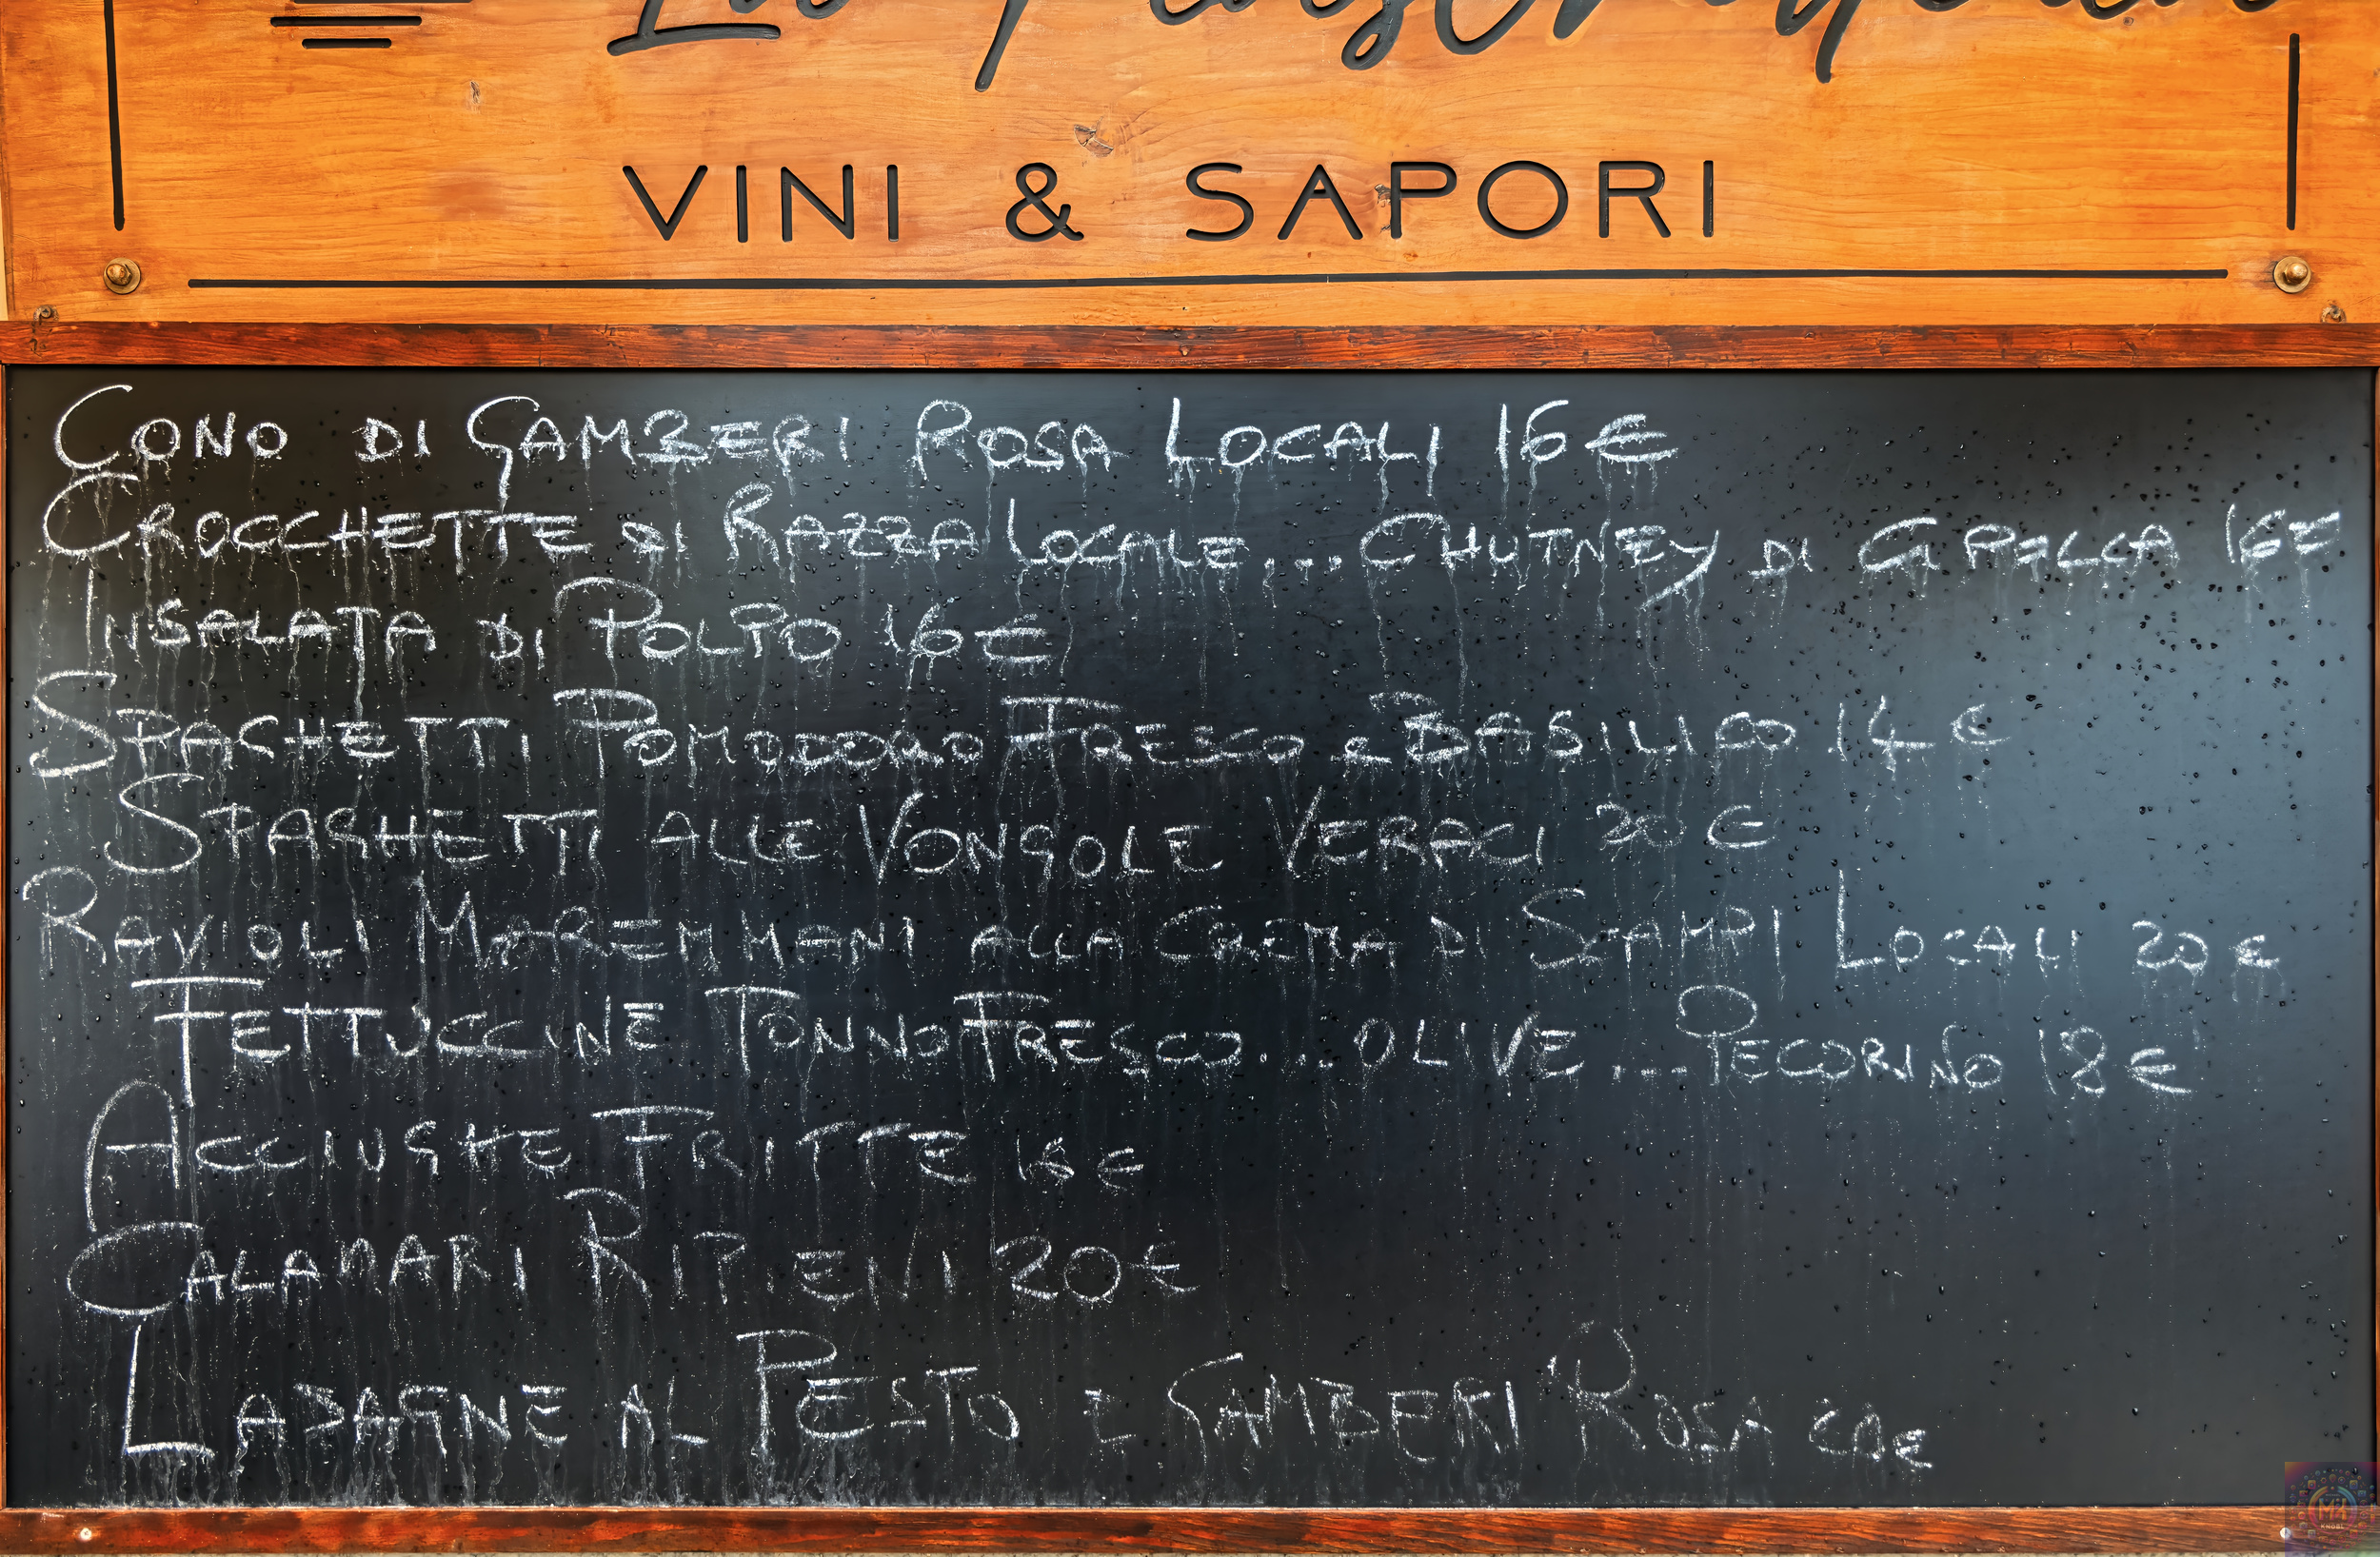 La
VINI & SAPORI
CONO DI GAMBERI ROSA LOCALI 16 €
CROCCHETTE DI RAZZA LOCALE... CHUTNEY DI 16 €
INSALATA DI POLPO 16 €
SPAGHETTI POMODORO FRESCO e BASILICO 14 €
SPAGHETTI ALLE VONGOLE VERACI 20 €
RAVIOLI MAREMMANI ALLA CREMA DI SCAMPI LOCALI 20 €
FETTUCCINE TONNO FRESCO... OLIVE... PECORINO 18 €
ACCIUGHE FRITTE €
CALAMARI RIPIENI 20 €
LASAGNE AL PESTO E GAMBERI ROSA €